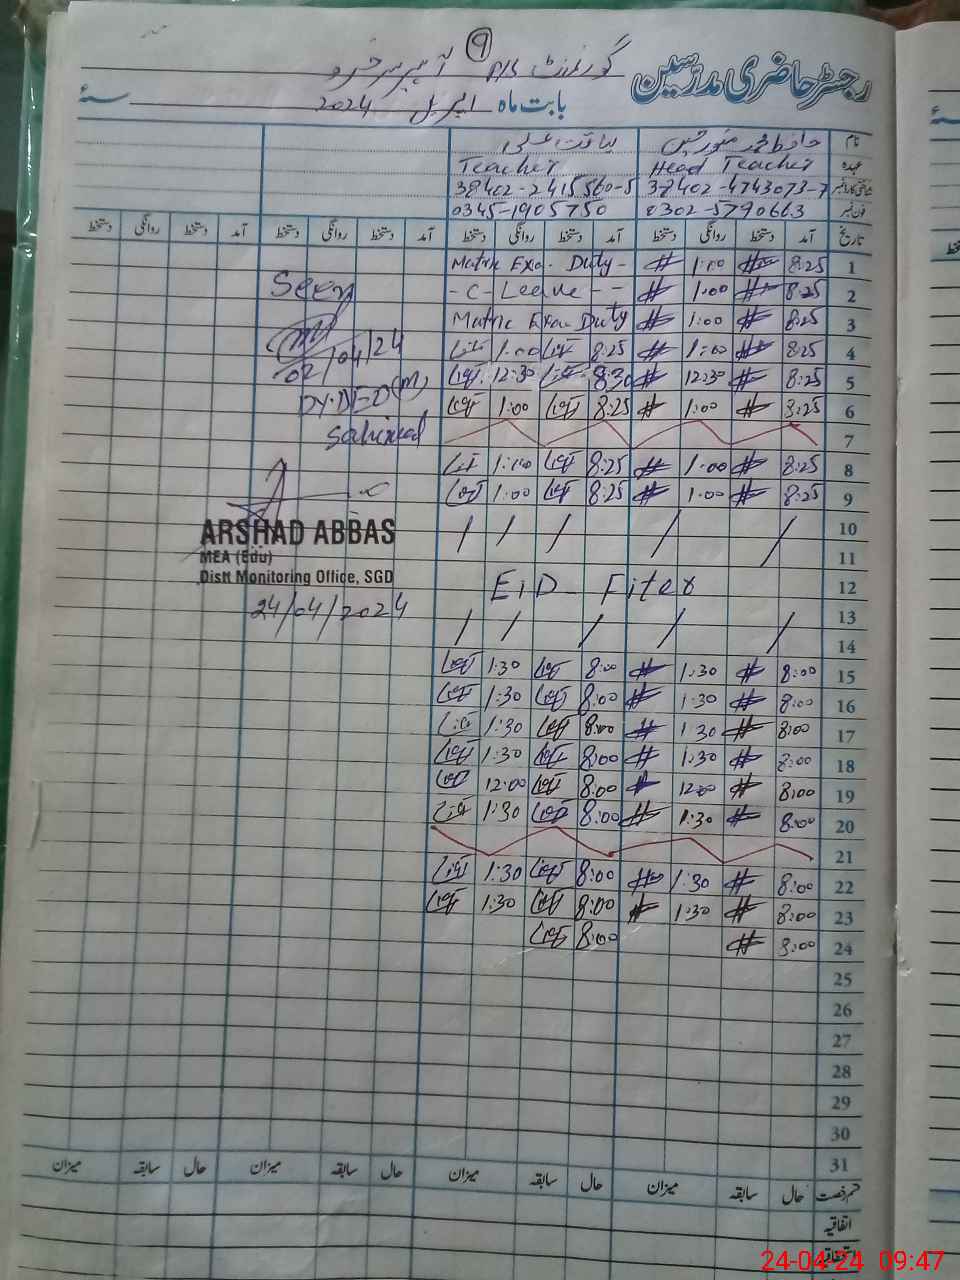 9
رجسٹر حاضری مدرسین گورنمنٹ P/S
بابت ماہ اپریل 2024 سنہ
نام حافظ محمد منور حسین لیاقت علی
عہدہ Head Teacher Teacher
شناختی کارڈ نمبر 38402-4743073-7 38402-2415560-5
فون نمبر 0302-5790663 0345-1905750
تاریخ آمد دستخط روانگی دستخط آمد دستخط روانگی دستخط آمد دستخط روانگی دستخط آمد دستخط روانگی دستخط
1 8:25 1:00 Matric Exa. Duty -
2 8:25 1:00 - C - Leave - -
3 8:25 1:00 Matric Exa. Duty
4 8:25 1:00 8:25 1:00
5 8:25 12:30 8:30 12:30
6 8:25 1:00 8:25 1:00
7
8 8:25 1:00 8:25 1:00
9 8:25 1:00 8:25 1:00
10
11
12 EiD Fiter
13
14
15 8:00 1:30 8:00 1:30
16 8:00 1:30 8:00 1:30
17 8:00 1:30 8:00 1:30
18 8:00 1:30 8:00 1:30
19 8:00 12:00 8:00 12:00
20 8:00 1:30 8:00 1:30
21
22 8:00 1:30 8:00 1:30
23 8:00 1:30 8:00 1:30
24 8:00 8:00
25
26
27
28
29
30
31
Seen
02/04/24
DY.DEO(M)
Sahiwal
ARSHAD ABBAS
MEA (Edu)
Distt Monitoring Office, SGD
24/04/2024
قسم رخصت حال سابقہ میزان حال سابقہ میزان حال سابقہ میزان حال سابقہ میزان
اتفاقیہ
24-04-24 09:47